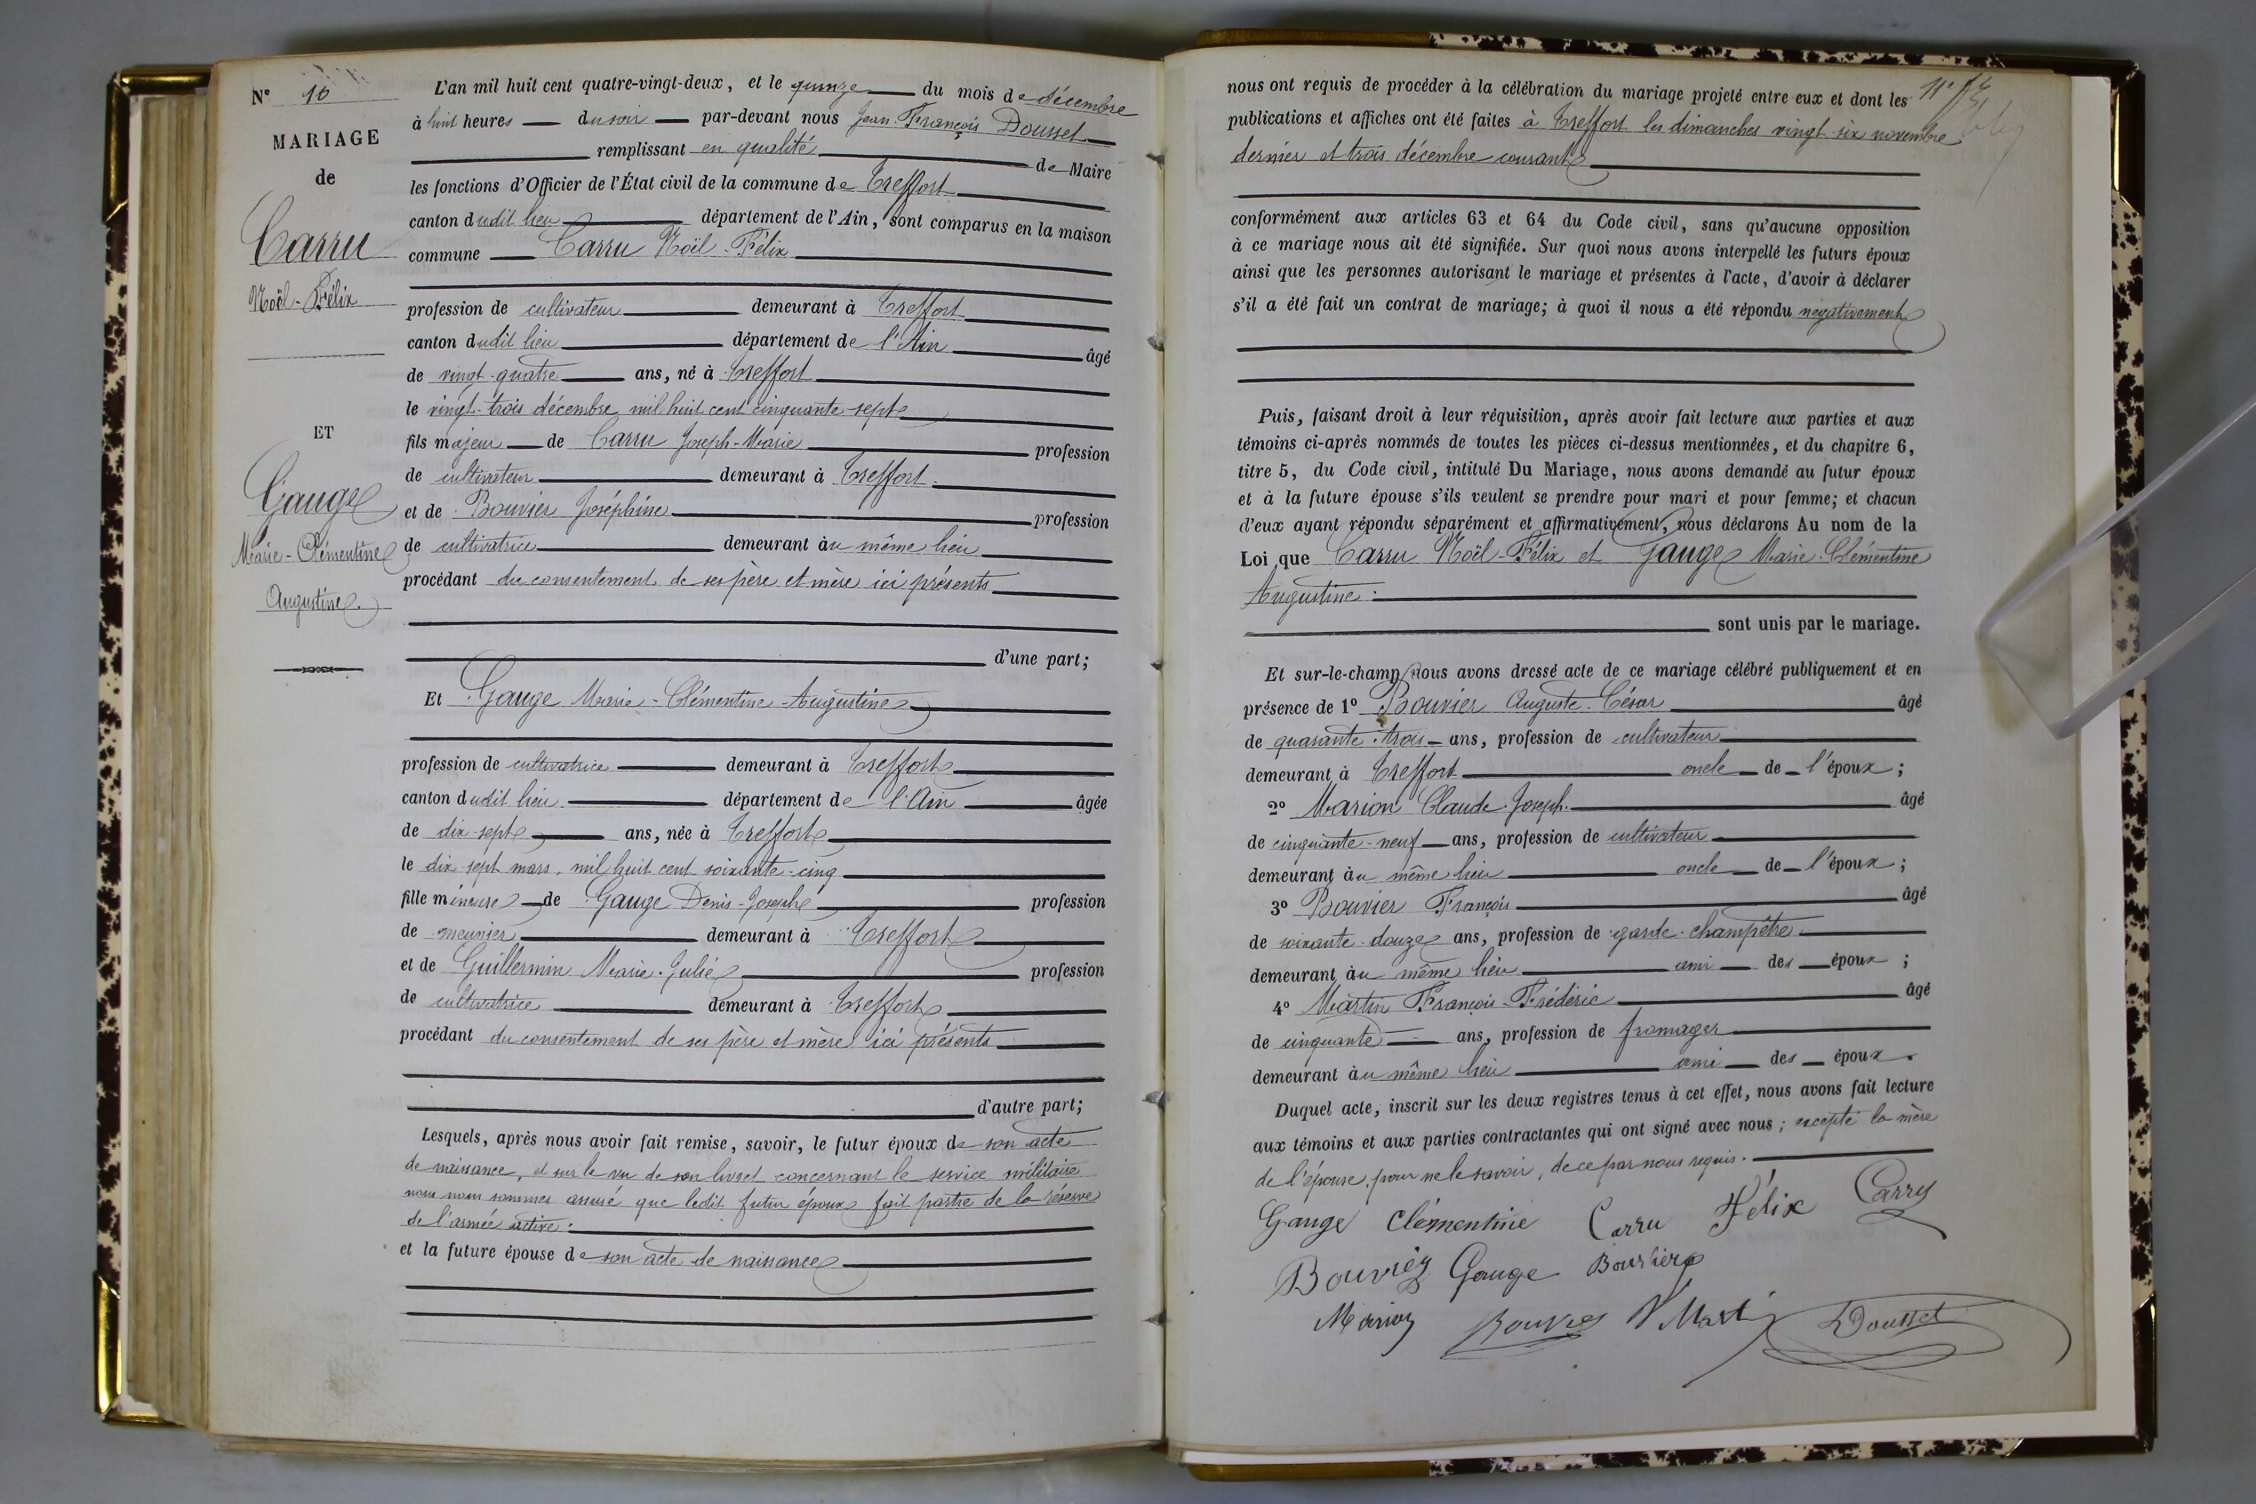 N° 16
MARIAGE
de
Carru
Noël-Félix
ET
Gauge
Marie-Clémentine
Augustine.
L'an mil huit cent quatre-vingt-deux, et le quinze du mois de décembre
à huit heures du soir par-devant nous Jean-François Dousset
remplissant en qualité de Maire
les fonctions d'Officier de l'État civil de la commune de Treffort
canton dudit lieu département de l'Ain, sont comparus en la maison
commune Carru Noël-Félix
profession de cultivateur demeurant à Treffort
canton dudit lieu département de l'Ain âgé
de vingt-quatre ans, né à Treffort
le vingt-trois décembre mil huit cent cinquante-sept
fils majeur de Carru Joseph-Marie profession
de cultivateur demeurant à Treffort.
et de Bouvier Joséphine profession
de cultivatrice demeurant au même lieu
procédant du consentement de ses père et mère ici présents
d'une part;
Et Gauge Marie-Clémentine-Augustine
profession de cultivatrice demeurant à Treffort
canton dudit lieu département de l'Ain âgée
de dix-sept ans, née à Treffort
le dix-sept mars, mil huit cent soixante-cinq
fille mineure de Gauge Denis-Joseph profession
de meunier demeurant à Treffort
et de Guillermin Marie-Julie profession
de cultivatrice demeurant à Treffort
procédant du consentement de ses père et mère ici présents
d'autre part;
Lesquels, après nous avoir fait remise, savoir, le futur époux de son acte
de naissance, et sur le vu de son livret concernant le service militaire
nous nous sommes assuré que ledit futur époux fait partie de la réserve
de l'armée active.
et la future épouse de son acte de naissance
nous ont requis de procéder à la célébration du mariage projeté entre eux et dont les
publications et affiches ont été faites à Treffort les dimanches vingt-six novembre
dernier et trois décembre courant
conformément aux articles 63 et 64 du Code civil, sans qu'aucune opposition
à ce mariage nous ait été signifiée. Sur quoi nous avons interpellé les futurs époux
ainsi que les personnes autorisant le mariage et présentes à l'acte, d'avoir à déclarer
s'il a été fait un contrat de mariage; à quoi il nous a été répondu négativement
Puis, faisant droit à leur réquisition, après avoir fait lecture aux parties et aux
témoins ci-après nommés de toutes les pièces ci-dessus mentionnées, et du chapitre 6,
titre 5, du Code civil, intitulé Du Mariage, nous avons demandé au futur époux
et à la future épouse s'ils veulent se prendre pour mari et pour femme; et chacun
d'eux ayant répondu séparément et affirmativement, nous déclarons Au nom de la
Loi que Carru Noël-Félix et Gauge Marie-Clémentine
Augustine.
sont unis par le mariage.
Et sur-le-champ nous avons dressé acte de ce mariage célébré publiquement et en
présence de 1° Bouvier Auguste-César âgé
de quarante-trois ans, profession de cultivateur
demeurant à Treffort oncle de l'époux;
2° Marion Claude-Joseph. âgé
de cinquante-neuf ans, profession de cultivateur
demeurant au même lieu oncle de l'époux;
3° Bouvier François âgé
de soixante-douze ans, profession de garde-champêtre
demeurant au même lieu ami des époux;
4° Martin François-Frédéric âgé
de cinquante ans, profession de fromager
demeurant au même lieu ami des époux.
Duquel acte, inscrit sur les deux registres tenus à cet effet, nous avons fait lecture
aux témoins et aux parties contractantes qui ont signé avec nous; excepté la mère
de l'épouse, pour ne le savoir, de ce par nous requis.
Gauge Clémentine Carru Félix Carru
Bouvier Gauge Bouvier
Marion Bouvier Dousset